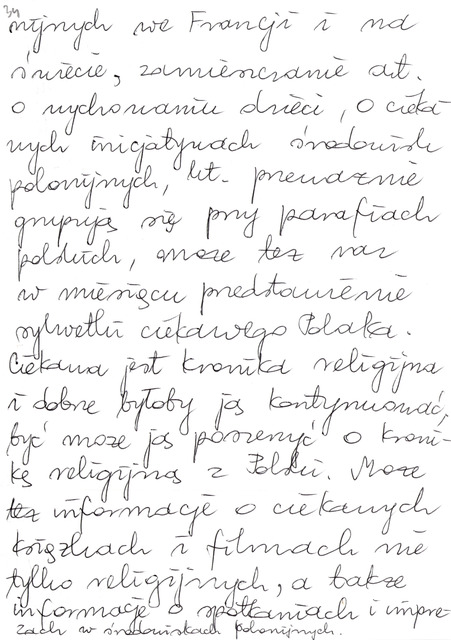 34
nijnych we Francji i na
świecie, zamieszczanie art.
o wychowaniu dzieci, o cieka-
wych inicjatywach środowisk
polonijnych, kt. przeważnie
grupują się przy parafiach
polskich, może też raz
w miesiącu przedstawienie
sylwetki ciekawego Polaka.
Ciekawa jest kronika religijna
i dobrze byłoby ją kontynuować,
być może ją poszerzyć o kroni-
kę religijną z Polski. Może
też informacje o ciekawych
książkach i filmach nie
tylko religijnych, a także
informacje o spotkaniach i impre-
zach w środowiskach polonijnych.